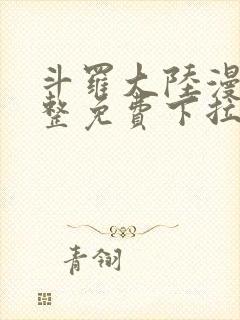 斗羅大陸漫
整免費下拉
青翎